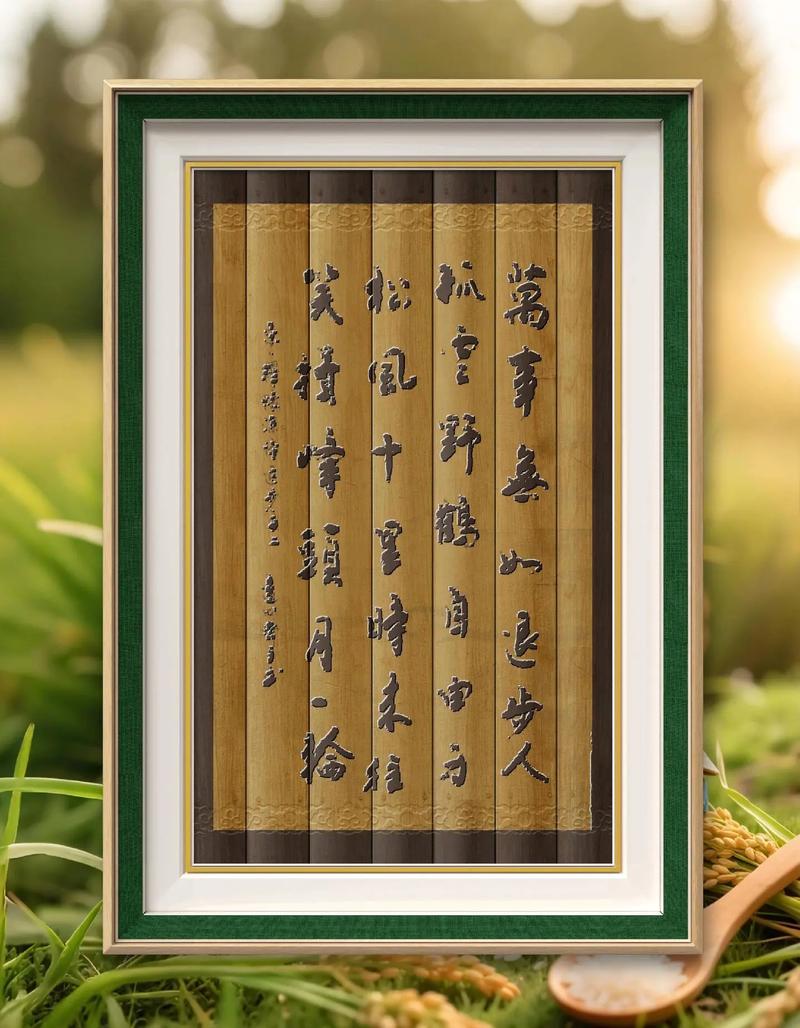 萬事無如退步人
孤雲野鶴自由身
松風十里時来往
笑揖峰頭月一輪
宋·釋懷深詩退步